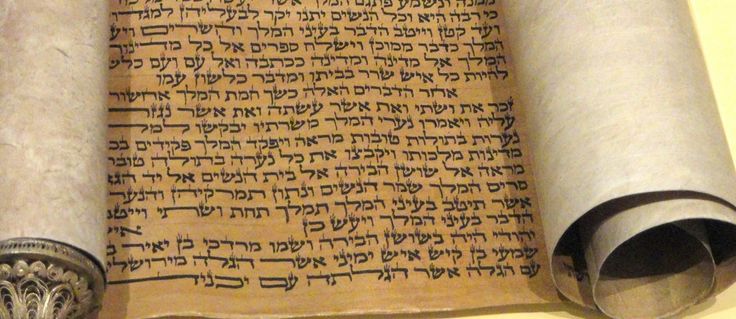 ונשמע פתגם המלך
כי רבה היא וכל הנשים יתנו יקר לבעליהן
ועד קטן וייטב הדבר בעיני המלך והשרים
המלך כדבר ממוכן וישלח ספרים אל כל מדינות
המלך אל מדינה ומדינה ככתבה ואל עם ועם
להיות כל איש שרר בביתו ומדבר כלשון עמו
אחר הדברים האלה כשך חמת המלך
זכר את ושתי ואת אשר עשתה ואת אשר נגזר
עליה ויאמרו נערי המלך משרתיו יבקשו למלך
נערות בתולות טובות מראה ויפקד המלך פקידים
מדינות מלכותו ויקבצו את כל נערה בתולה
מראה אל שושן הבירה אל בית הנשים אל יד
סריס המלך שמר הנשים ונתון תמרקיהן
אשר תיטב בעיני המלך תמלך תחת ושתי
הדבר בעיני המלך ויעש כן
יהודי היה בשושן הבירה ושמו מרדכי בן יאיר
שמעי בן קיש איש ימיני אשר הגלה
עם הגלה אשר הגלתה עם יכניה